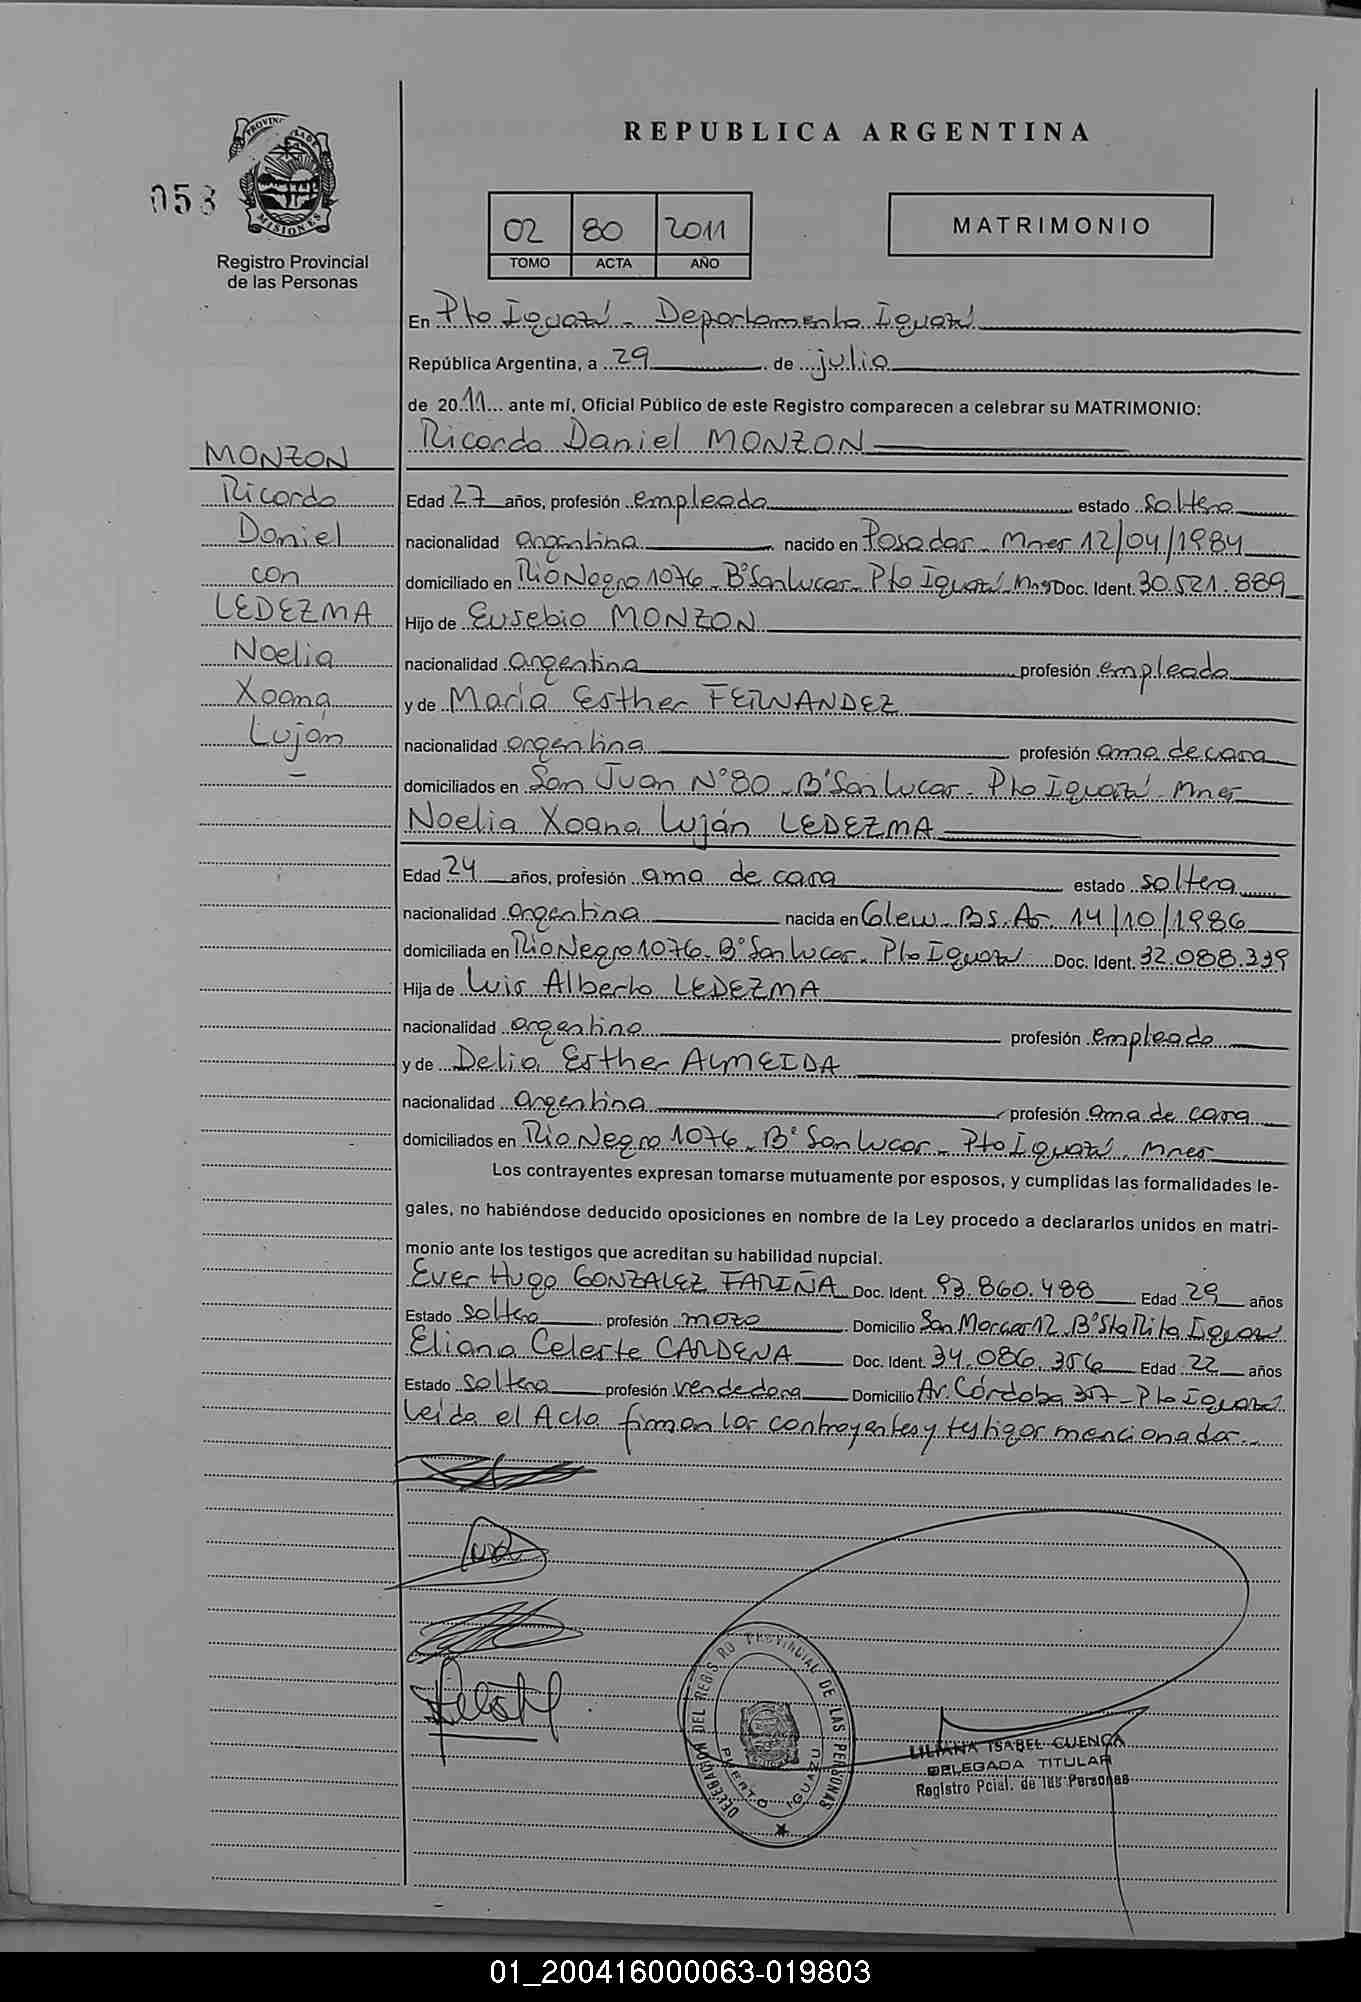 REPUBLICA ARGENTINA
PROVINCIA DE MISIONES
058
Registro Provincial
de las Personas
02 80 2011
TOMO ACTA AÑO
MATRIMONIO
MONZON
Ricardo
Daniel
con
LEDEZMA
Noelia
Xoana
Luján
En Pto Iguazú - Departamento Iguazú
República Argentina, a 29 de julio
de 2011 ante mí, Oficial Público de este Registro comparecen a celebrar su MATRIMONIO:
Ricardo Daniel MONZON
Edad 27 años, profesión empleado estado soltero
nacionalidad argentina nacido en Posadas - Mnes 12/04/1984
domiciliado en Río Negro 1076 - Bº San Lucas - Pto Iguazú - Mnes Doc. Ident. 30.521.889
Hijo de Eusebio MONZON
nacionalidad argentina profesión empleado
y de María Esther FERNANDEZ
nacionalidad argentina profesión ama de casa
domiciliados en San Juan Nº 80 - Bº San Lucas - Pto Iguazú - Mnes
Noelia Xoana Luján LEDEZMA
Edad 24 años, profesión ama de casa estado soltera
nacionalidad argentina nacida en Glew - Bs. As. 14/10/1986
domiciliada en Río Negro 1076 - Bº San Lucas - Pto Iguazú Doc. Ident. 32.088.339
Hija de Luis Alberto LEDEZMA
nacionalidad argentina profesión empleado
y de Delia Esther ALMEIDA
nacionalidad argentina profesión ama de casa
domiciliados en Río Negro 1076 - Bº San Lucas - Pto Iguazú - Mnes
Los contrayentes expresan tomarse mutuamente por esposos, y cumplidas las formalidades le-
gales, no habiéndose deducido oposiciones en nombre de la Ley procedo a declararlos unidos en matri-
monio ante los testigos que acreditan su habilidad nupcial.
Ever Hugo GONZALEZ FARIÑA Doc. Ident. 93.860.488 Edad 29 años
Estado soltero profesión mozo Domicilio San Marcos 12 - Bº Sta Rita Iguazú
Eliana Celeste CARDENA Doc. Ident. 34.086.356 Edad 22 años
Estado soltera profesión vendedora Domicilio Av. Córdoba 357 - Pto Iguazú
Leída el Acta firman los contrayentes y testigos mencionados.-
DELEGACION DEL REGISTRO PROVINCIAL DE LAS PERSONAS
PUERTO IGUAZU
LILIANA ISABEL CUENCA
DELEGADA TITULAR
Registro Pcial. de las Personas
01_200416000063-019803